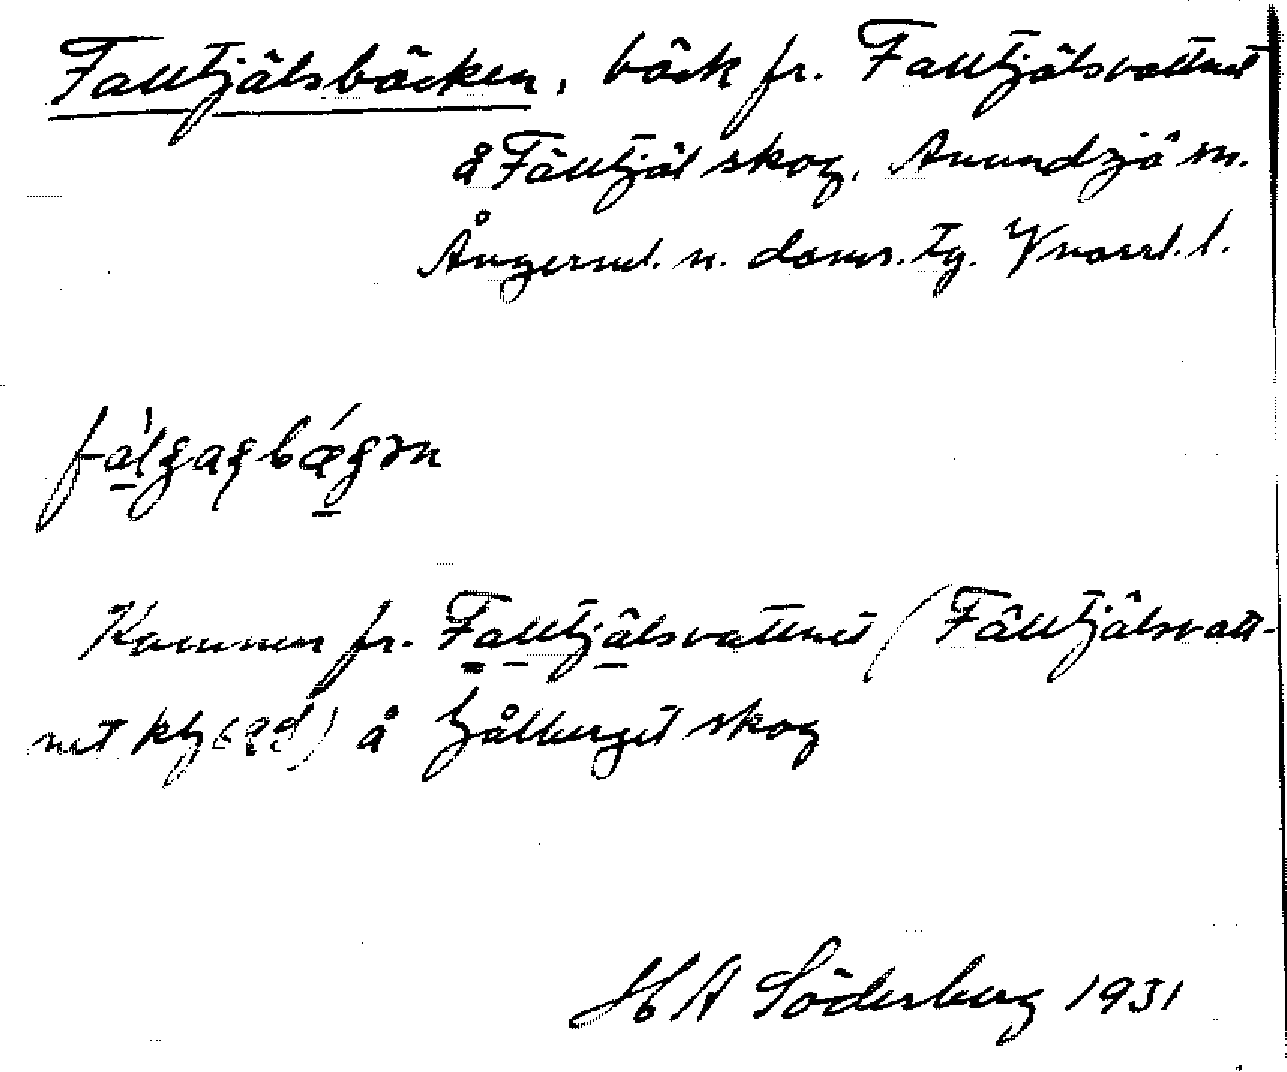 Falltjälsbäcken, bäck fr. Falltjälsvattnet
å Fälltjäl skog, Anundsjö sn.
Ångerml. n. doms. tg. Vnorrl. l.
Kommer fr. Falltjälsvattnet (Fälltjälsvatt-
net) å Hålberget skog
H A Söderberg 1931